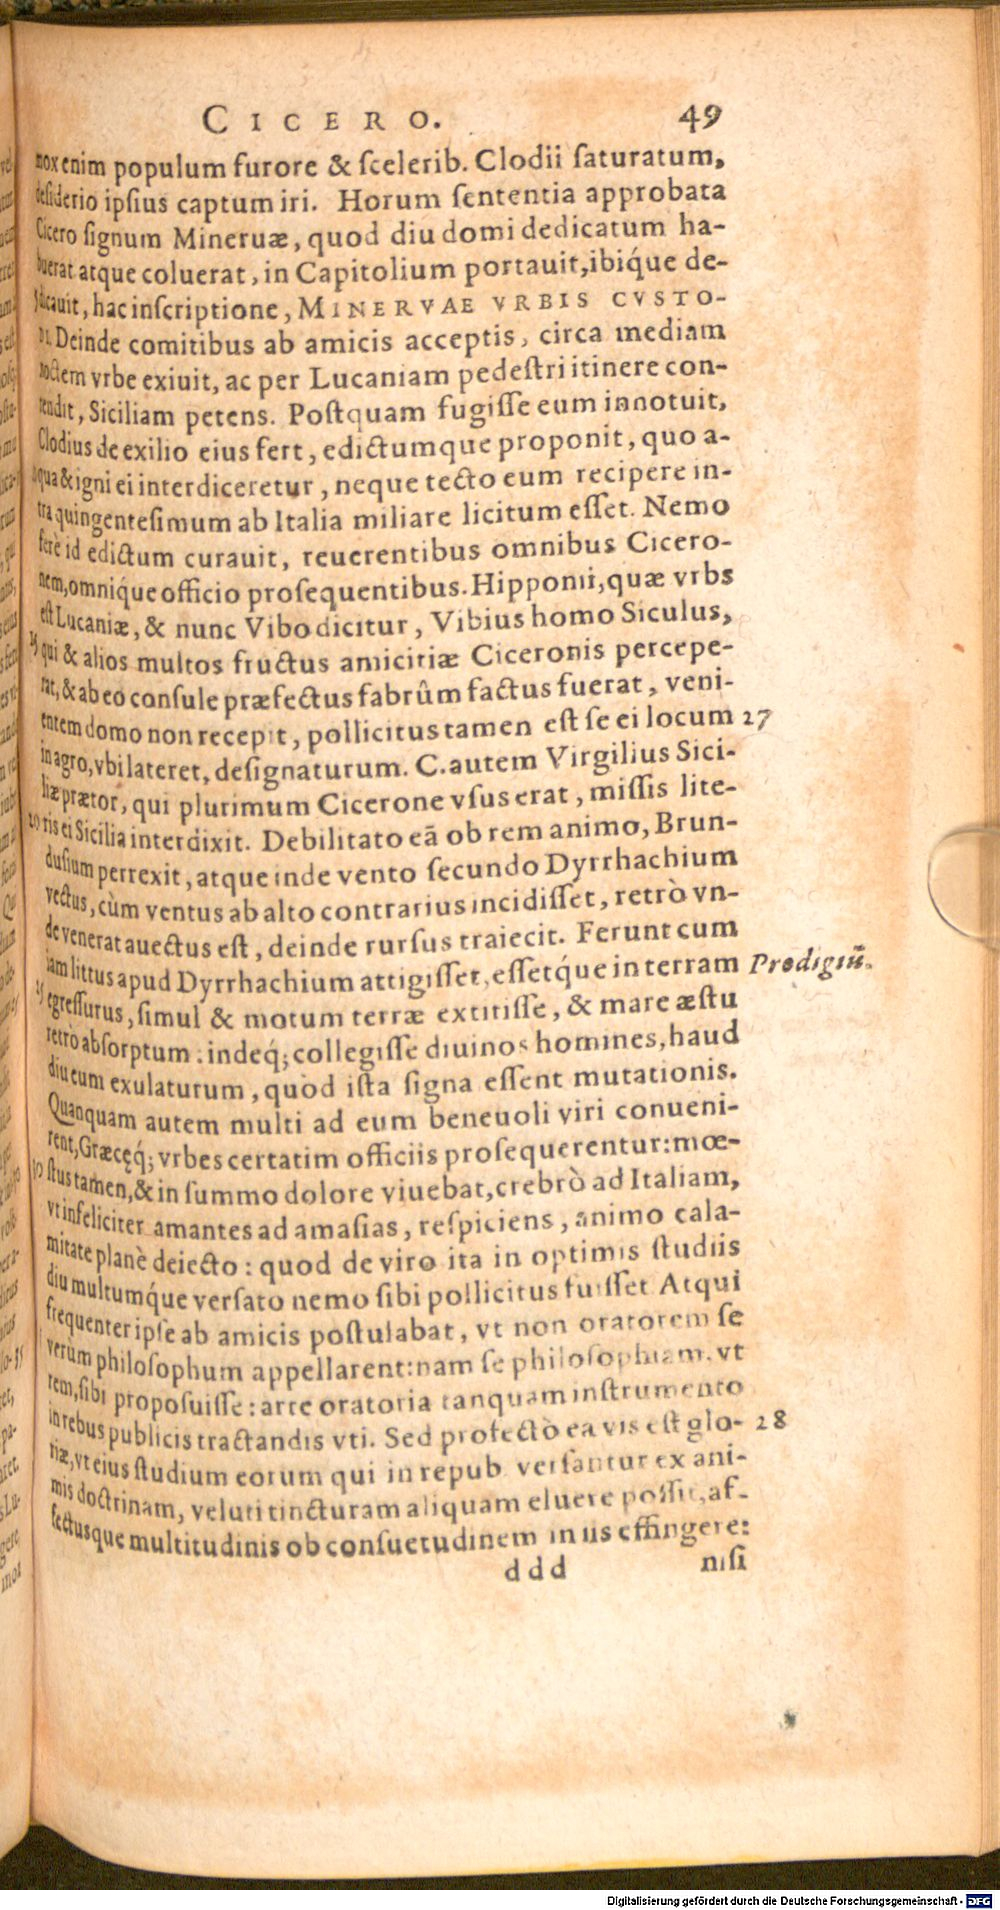 CICERO. 49
mox enim populum furore & scelerib. Clodii saturatum,
desiderio ipsius captum iri. Horum sententia approbata
Cicero signum Mineruæ, quod diu domi dedicatum ha-
buerat atque coluerat, in Capitolium portauit, ibiq́ue de-
5 dicauit, hac inscriptione, MINERVAE VRBIS CVSTO-
DI. Deinde comitibus ab amicis acceptis, circa mediam
noctem vrbe exiuit, ac per Lucaniam pedestri itinere con-
tendit, Siciliam petens. Postquam fugisse eum innotuit,
Clodius de exilio eius fert, edictumque proponit, quo a-
qua & igni ei interdiceretur, neque tecto eum recipere in-
tra quingentesimum ab Italia miliare licitum esset. Nemo
ferè id edictum curauit, reuerentibus omnibus Cicero-
nem, omniq́ue officio prosequentibus. Hipponii, quæ vrbs
est Lucaniæ, & nunc Vibo dicitur, Vibius homo Siculus,
15 qui & alios multos fructus amicitiæ Ciceronis percepe-
rat, & ab eo consule præfectus fabrûm factus fuerat, veni-
entem domo non recepit, pollicitus tamen est se ei locum 27
in agro, vbi lateret, designaturum. C. autem Virgilius Sici-
liæ prætor, qui plurimum Cicerone vsus erat, missis lite-
20 ris ei Sicilia interdixit. Debilitato eã ob rem animo, Brun-
dusium perrexit, atque inde vento secundo Dyrrhachium
vectus, cùm ventus ab alto contrarius incidisset, retrò vn-
de venerat auectus est, deinde rursus traiecit. Ferunt cum
iam littus apud Dyrrhachium attigisset, essetq́ue in terram Prodigiũ.
25 egressurus, simul & motum terræ extitisse, & mare æstu
retrò absorptum: indeq́; collegisse diuinos homines, haud
diu eum exulaturum, quòd ista signa essent mutationis.
Quanquam autem multi ad eum beneuoli viri conueni-
rent, Græcęq́; vrbes certatim officiis prosequerentur: mœ-
30 stus tamen, & in summo dolore viuebat, crebrò ad Italiam,
vt infeliciter amantes ad amasias, respiciens, animo cala-
mitate planè deiecto: quod de viro ita in optimis studiis
diu multumq́ue versato nemo sibi pollicitus fuisset Atqui
frequenter ipse ab amicis postulabat, vt non oratorem se
verùm philosophum appellarent: nam se philosophiam, vt
rem, sibi proposuisse: arte oratoria tanquam instrumento
in rebus publicis tractandis vti. Sed profectò ea vis est glo- 28
riæ, vt eius studium eorum qui in repub. versantur ex ani-
mis doctrinam, veluti tincturam aliquam eluere possit, af-
fectusque multitudinis ob consuetudinem in iis effingere:
ddd nisi
Digitalisierung gefördert durch die Deutsche Forschungsgemeinschaft - DFG